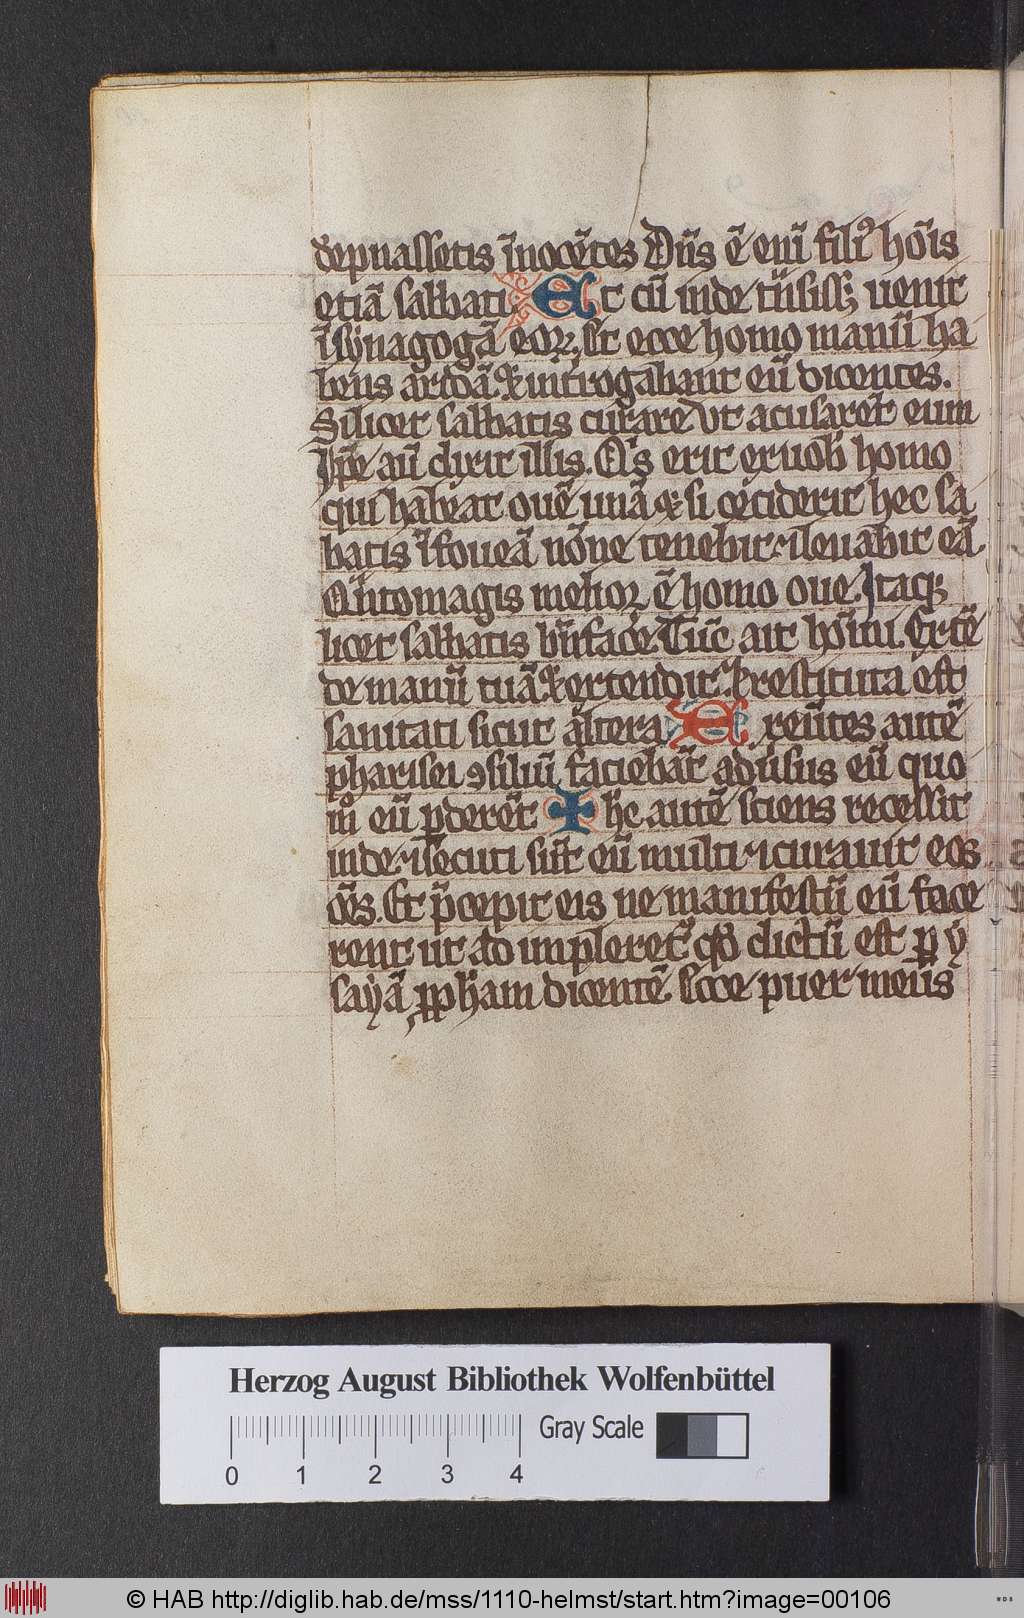 depnassetis īnocētes Dn̄s ē eni filiꝰ hōīs
etiā sabbati Et cū inde tn̄sissꝫ uenit
ī synagogā eoꝝ. Et ecce homo manū ha
bens aridā ⁊ int̄rogabant eū dicentes.
Si licet sabbatis curare Vt acusaret̄ eum
Ip̄e aū dixit illis. Qͥs erit ex uob̄ homo
qui habeat ouē unā ⁊ si ceciderit hec sa
batis ī foueā nōne tenebit ⁊ leuabit eā
Qͣnto magis melioꝛ ē homo oue. Itaqꝫ
licet sabbatis bn̄facē. Tūc ait hōīni. Extē
de manū tuā ⁊ extendit ⁊ restituta est
sanitati sicut altera Exeūtes autē
pharisei ꝯsiliū faciebāt adūsus eū quo
m̊ eū ꝑderēt Ih̄c autē sciens recessit
inde ⁊ secuti sūt eū multi ⁊ curauit eos
oēs. Et p̄cepit eis ne manifestū eū face
rent ut ad impleret̉ qd̄ dictū est ꝑ y
sayā ꝓph̄am dicentē. Ecce puer meus
Herzog August Bibliothek Wolfenbüttel
Gray Scale
0 1 2 3 4
© HAB http://diglib.hab.de/mss/1110-helmst/start.htm?image=00106